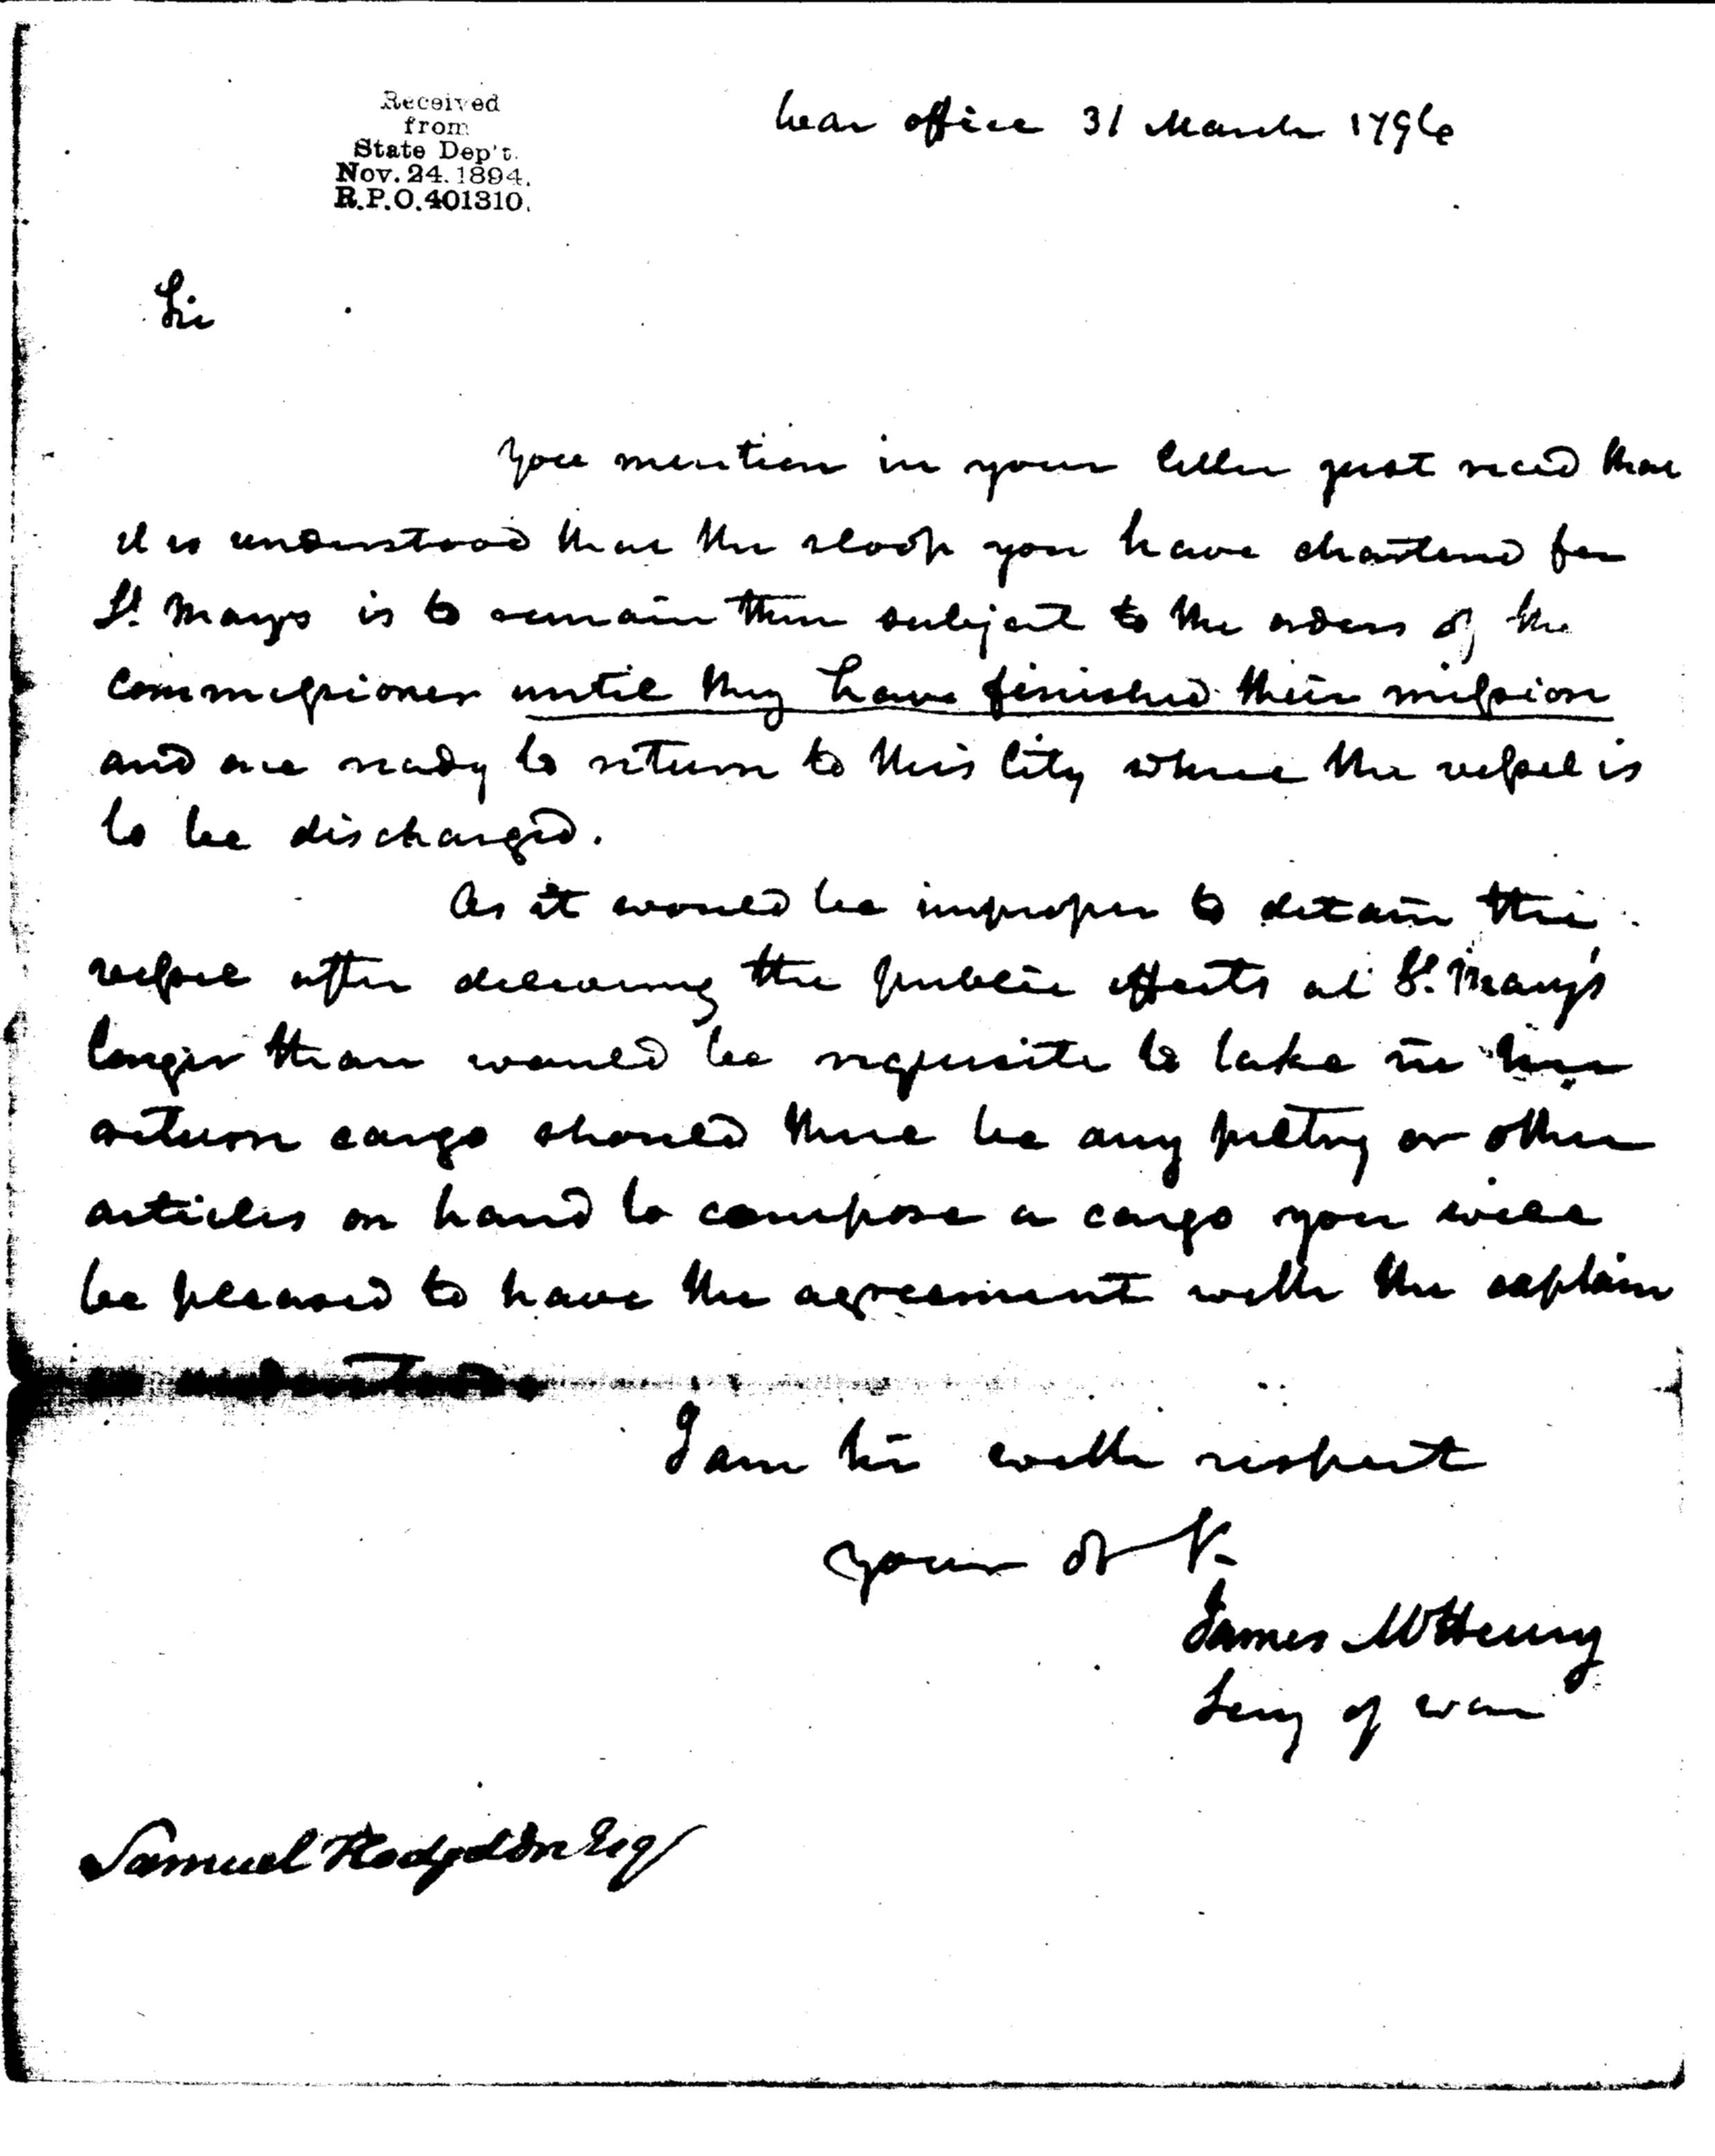 Received
from
State Dep't.
Nov. 24. 1894.
R.P.O. 401310.
War office 31 March 1796
Sir
You mention in your letter just recd that
it is understood that the sloop you have chartered for
St. Marys is to remain there subject to the orders of the
commissioner until they have finished their mission
and are ready to return to this City where the vessel is
to be discharged.
As it would be improper to detain the
vessel after delivering the public effects at St. Mary's
longer than would be requisite to take in her
return cargo should there be any peltry or other
articles on hand to compose a cargo you will
be pleased to have the agreement with the captain
so understood.
I am Sir with respect
your ob St.
James McHenry
Secy of war
Samuel Hodgdon Esq